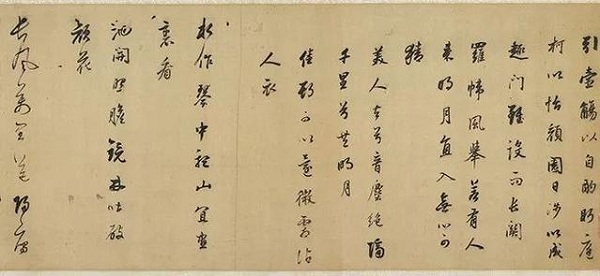 引壺觴以自酌眄庭
柯以怡顏園日涉以成
趣門雖設而長關
羅幃風舉若有人
来明月直入無心可
猜
美人去兮音塵絕隔
千里兮共明月
佳期可以還微霜沾
人衣
水作琴中聽山宜畫
裏看
池開照膽鏡林吐破
顏花
長風萬里送